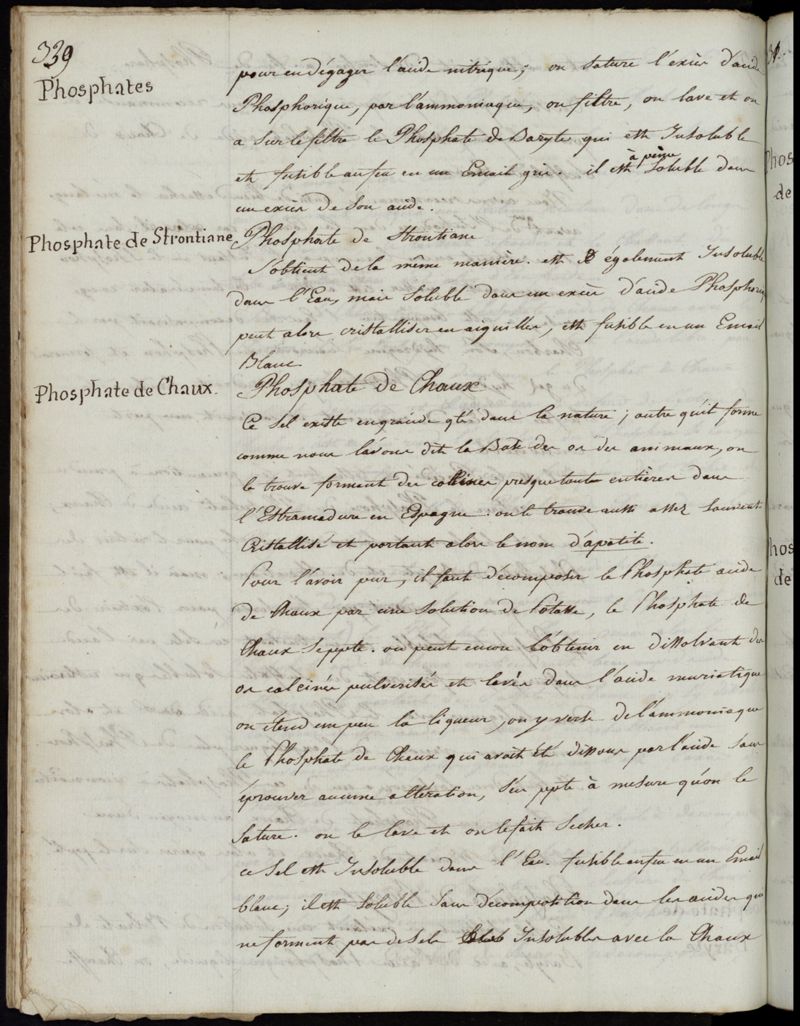 339
Phosphates
pour en dégager l'acide nitrique; on sature l'excès d'acide
Phosphorique, par l'ammoniaque, on filtre, on lave et on
a sur le filtre le Phosphate de Baryte qui est Insoluble
et fusible au feu en un Email gris. il est à peine Soluble dans
un excès de Son acide.
Phosphate de Strontiane
Phosphate de Strontiane
S'obtient de la même manière. est également Insoluble
dans l'Eau, mais Soluble dans un excès d'acide Phosphoriq
peut alors cristalliser en aiguilles, est fusible en un Email
Blanc.
Phosphate de Chaux.
Phosphate de Chaux
Ce Sel existe en grande qté dans la nature; outre qu'il forme
comme nous l'avons dit la Base des os des animaux, on
le trouve formant des collines presque toutes entières dans
l'Estramadure en Espagne. on le trouve aussi assez Souvent
Cristallisé et portant alors le nom d'apatite.
Pour l'avoir pur, il faut décomposer le Phosphate acide
de Chaux par une Solution de Potasse, le Phosphate de
Chaux Se ppte. on peut encore l'obtenir en dissolvant des
os calcinés pulverisés et lavés dans l'acide muriatique
on étend un peu la liqueur, on y verse de l'ammoniaque
le Phosphate de Chaux qui avait Eté dissous par l'acide Sans
éprouver aucune altération, S'en ppte à mesure qu'on le
Sature. on le lave et on le fait Secher.
ce Sel est Insoluble dans l'Eau. fusible au feu en un Email
blanc; il est Soluble Sans décomposition dans les acides qui
ne forment pas de Sels Insolubles avec la Chaux
Phos
de
hos
de